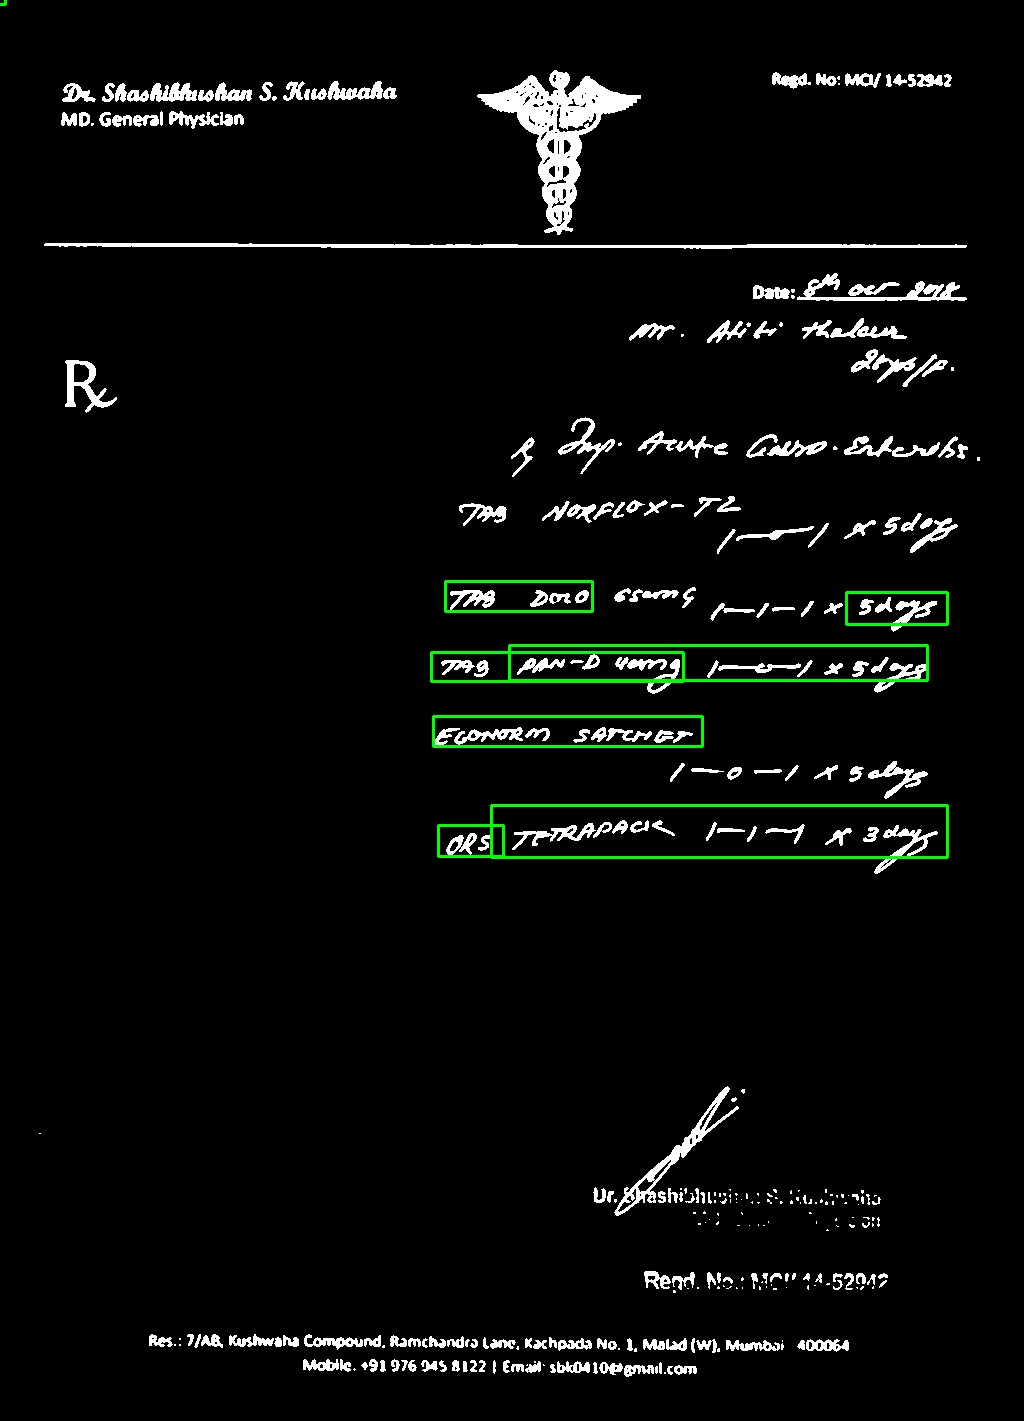 Dr. Shashibhushan S. Kushwaha
MD. General Physician
Regd. No: MCI/ 14-52942
Date: 8th oct 2018
Mr.
Rx
Imp. Acute Gastro-Enteritis.
TAB NORFLOX-TZ
1-0-1 x 5days
TAB DOLO 650mg 1-1-1 x 5days
TAB PAN-D 40mg 1-0-1 x 5days
ECONORM SATCHET
1-0-1 x 5days
ORS TETRAPACK 1-1-1 x 3days
Dr. Shashibhushan S. Kushwaha
Regd. No.: MCI/ 14-52942
Res.: 7/AB, Kushwaha Compound, Ramchandra Lane, Kachpada No. 1, Malad (W), Mumbai 400064
Mobile. +91 976 945 8122 | Email: sbk0410@gmail.com